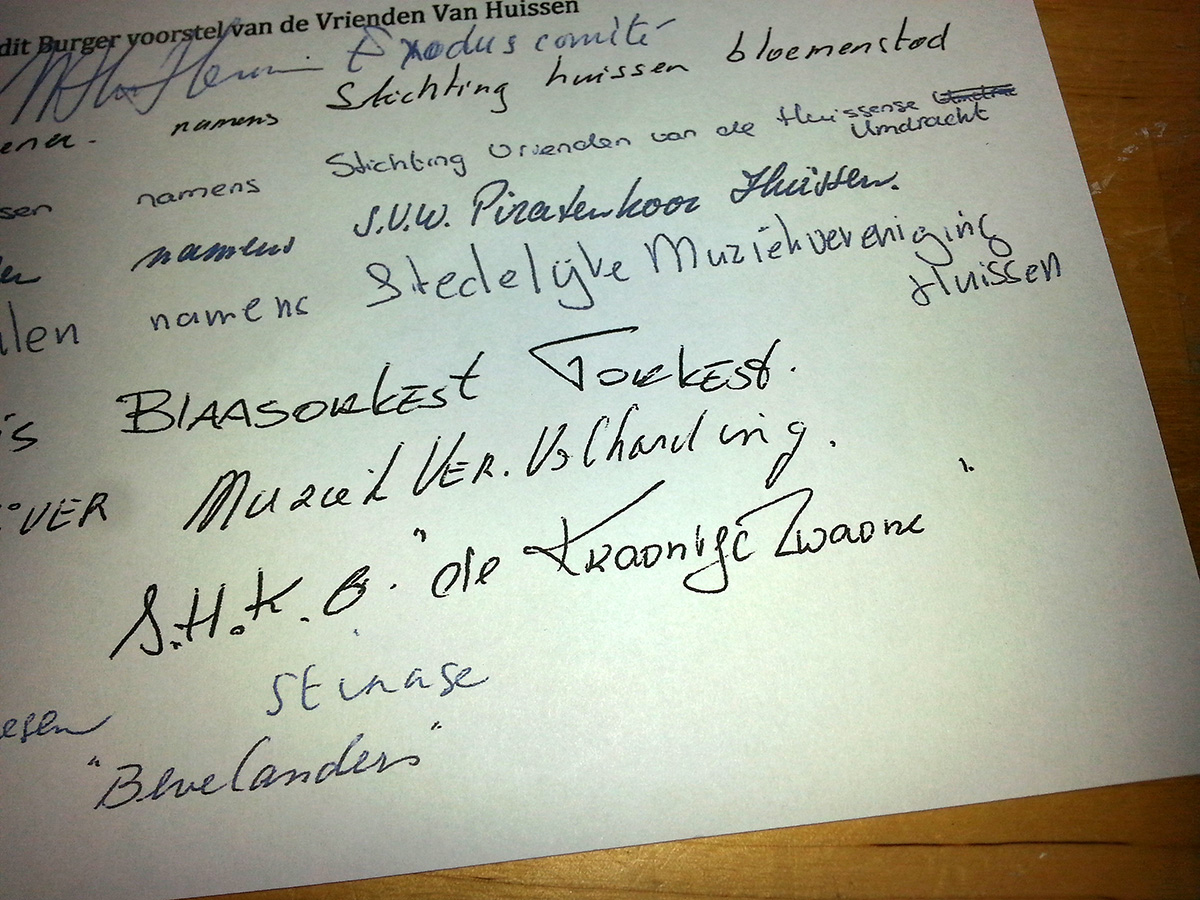 dit Burger voorstel van de Vrienden Van Huissen
Exodus comité
namens Stichting huissen bloemenstad
sen namens Stichting vrienden van de Huissense
Umdracht
namens S.V.W. Piratenkoor Huissen.
len namens Stedelijke Muziekvereniging
Huissen
is BLAASORKEST TORKEST.
EVER Muziek VER. Volharding.
S.H.K.G. "de Kraonige Zwaone".
Stinase
esen
"Bluelanders"